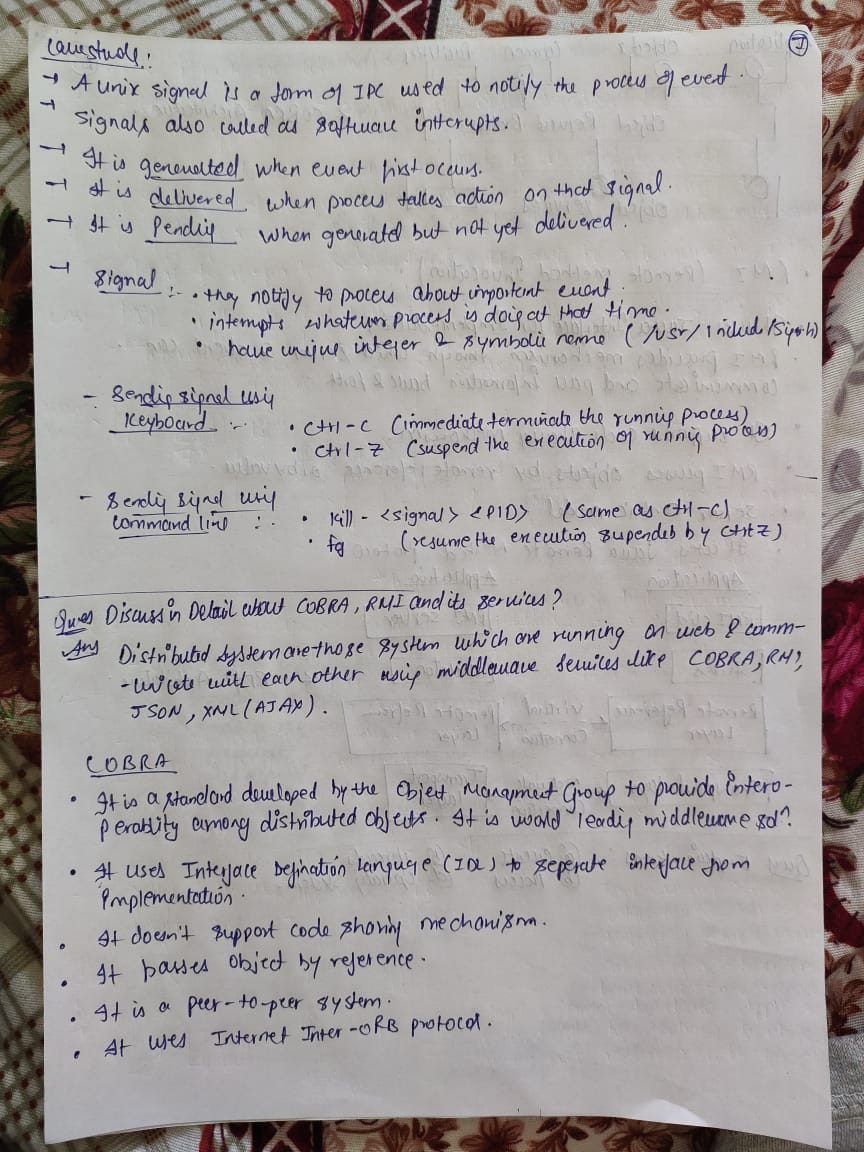 7
Casestudy:
→ A unix signal is a form of IPC used to notify the process of event.
→ Signals also called as software intterupts.
→ It is generated when event first occurs.
→ It is delivered when process takes action on that signal.
→ It is Pending when generated but not yet delivered.
→ Signal :- • they notify to process about important event.
• interrupts whatever process is doing at that time.
• have unique integer & symbolic name (/usr/includ/sig.h)
- Sending signal using
Keyboard :- • Ctrl-C (immediate terminate the running process)
• Ctrl-Z (suspend the execution of running process)
- Sending signal using
command line :. • Kill - <signal> <PID> (same as ctrl-c)
• fg (resume the execution supended by ctrl Z)
Ques Discuss in Detail about COBRA, RMI and its services?
Ans Distributed system are those system which are running on web & comm-
-unicate with each other using middleware services like COBRA, RMI,
JSON, XML (AJAX).
COBRA
• It is a standard developed by the Object Managment Group to provide intero-
perablity among distributed objects. It is world leading middleware sol?
• It uses Interface Defination Language (IDL) to seperate interface from
implementation.
• It doesn't support code sharing mechanism.
• It passes object by reference.
• It is a peer-to-peer system.
• It uses Internet Inter-ORB protocol.